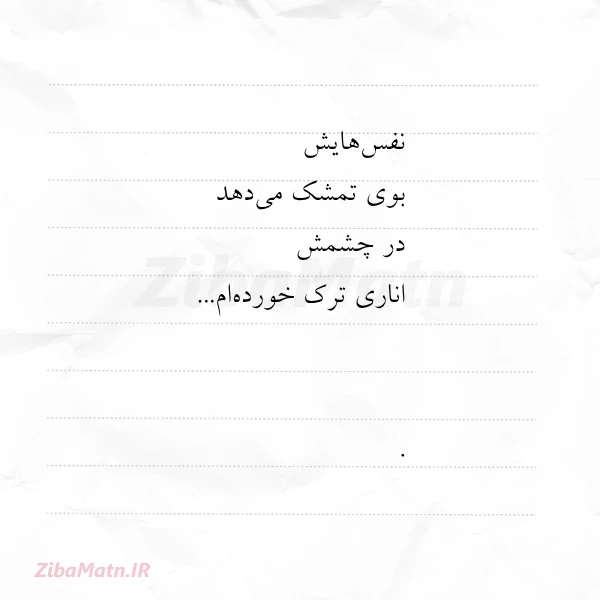 نفس‌هایش
بوی تمشک می‌دهد
در چشمش
ZibaMatn
اناری ترک خورده‌ام...
.
ZibaMatn.IR